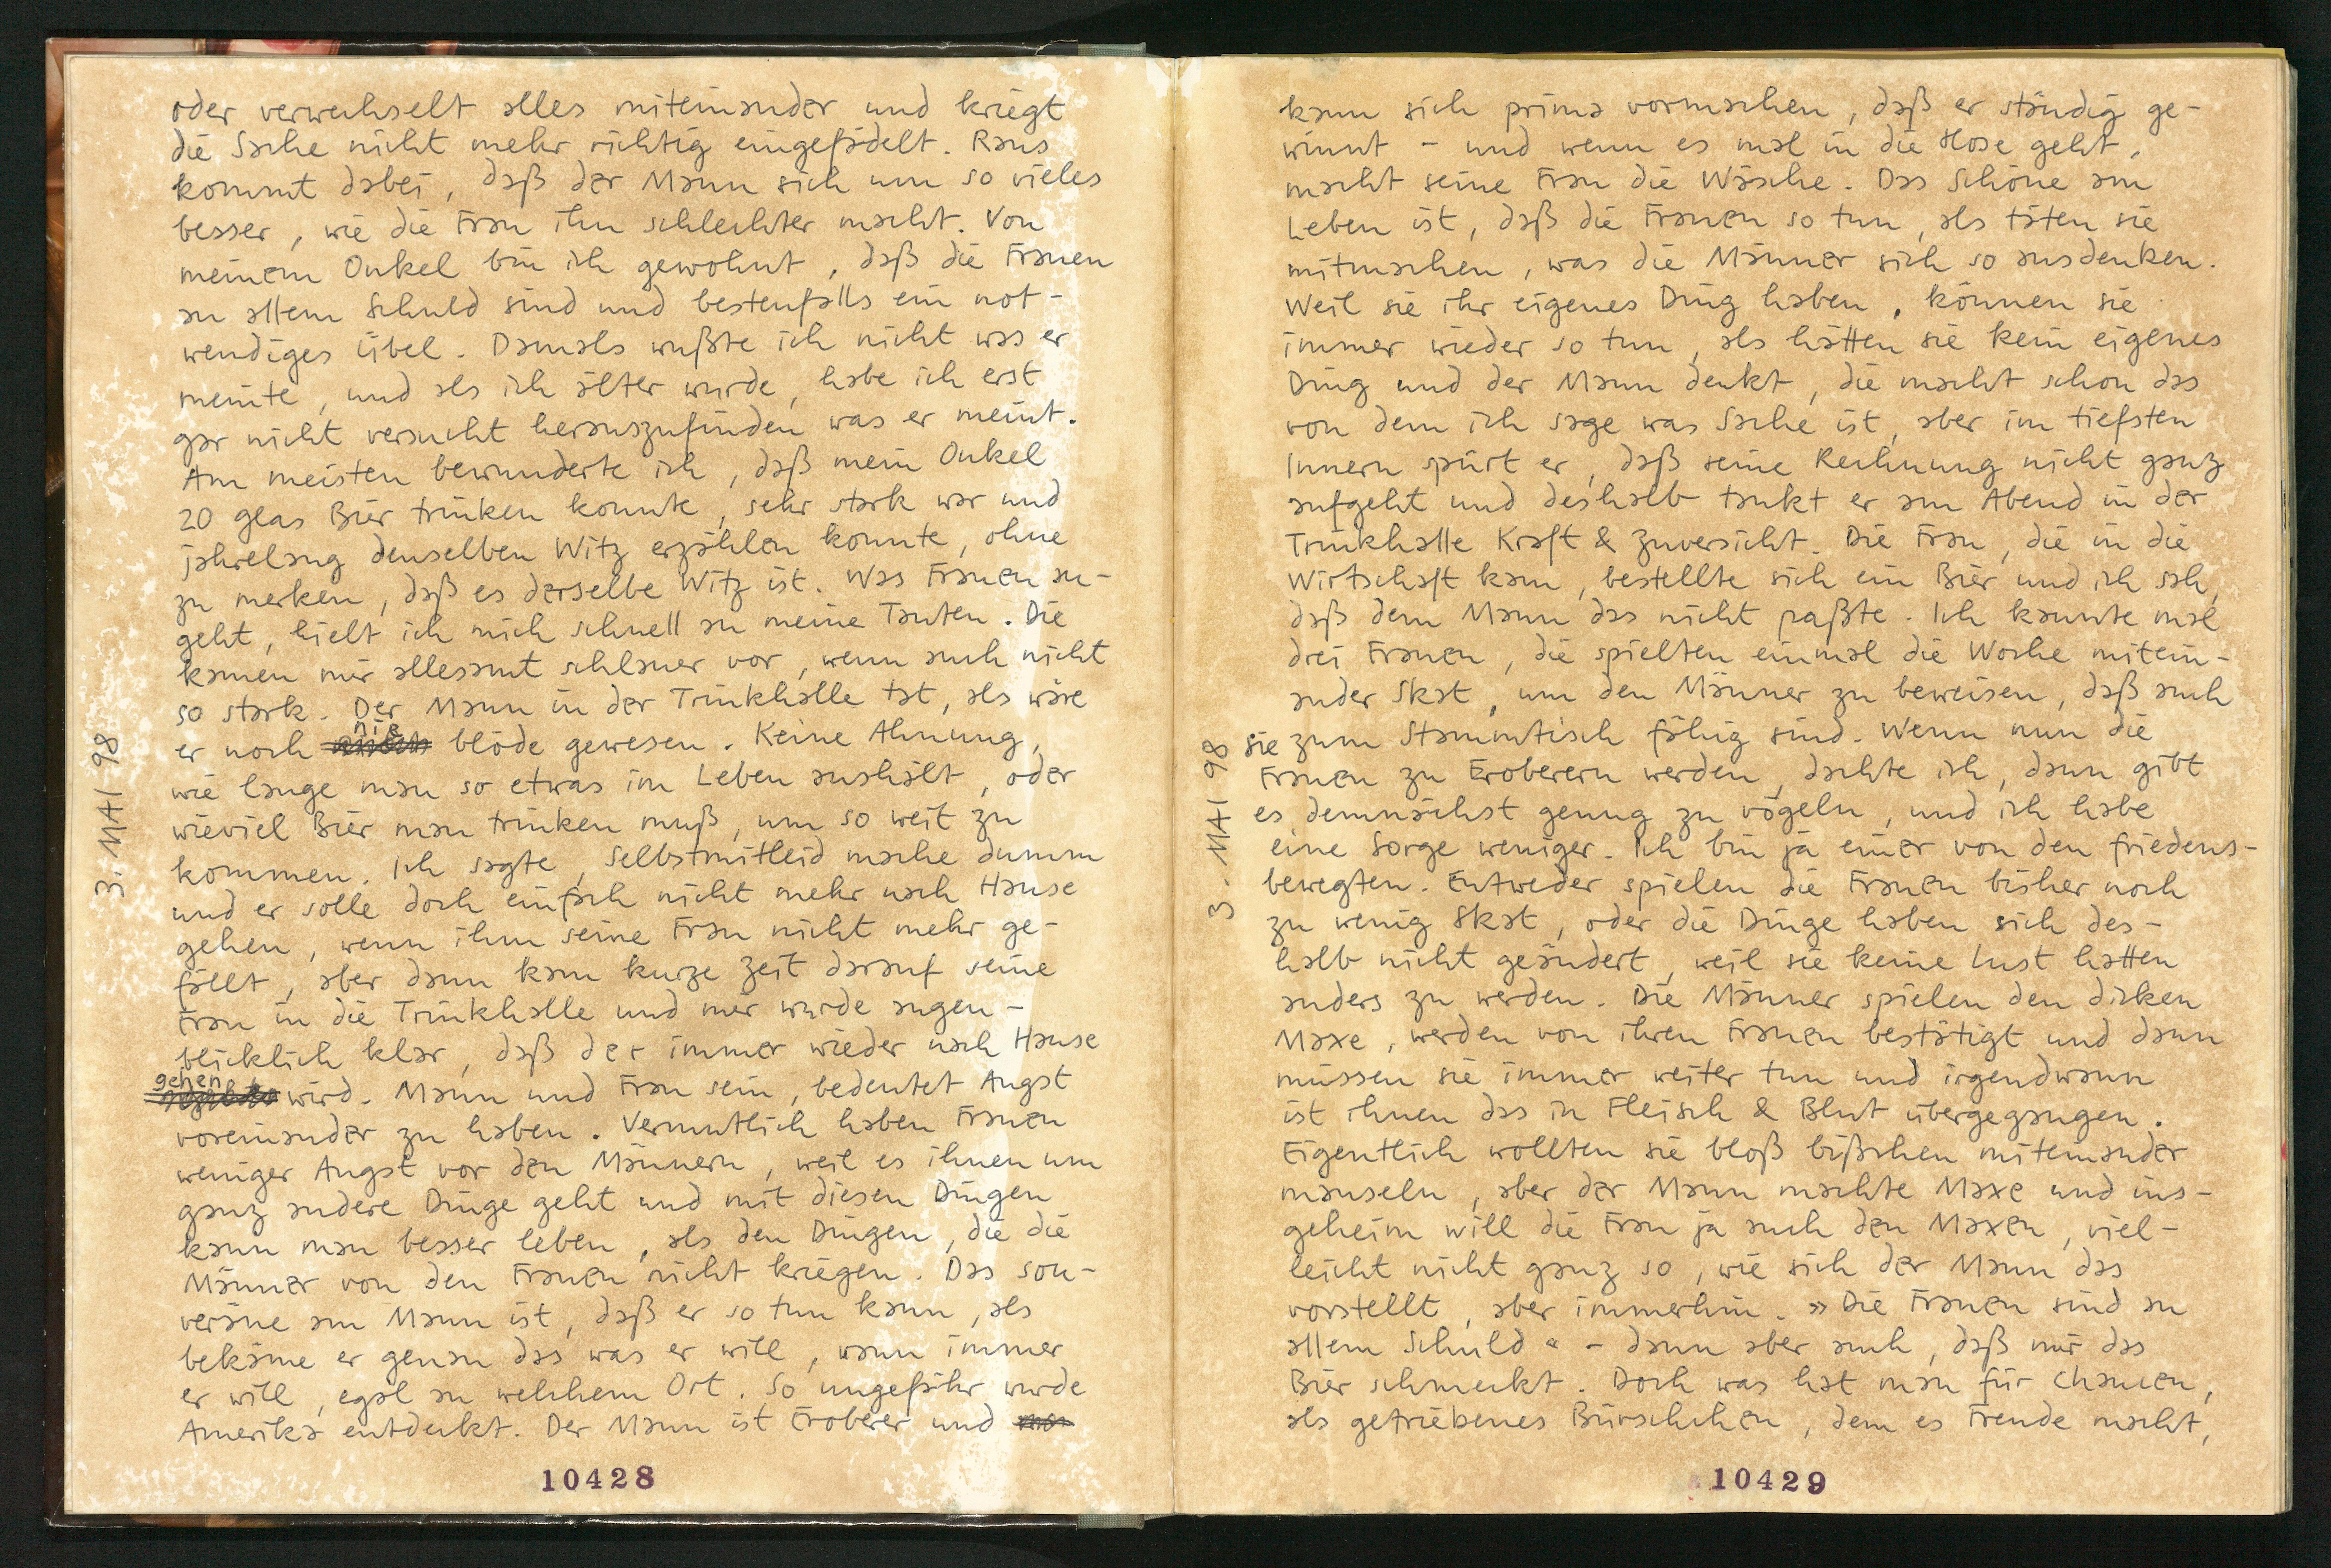 oder verwechselt alles miteinander und kriegt
die Sache nicht mehr richtig eingefädelt. Raus
kommt dabei, daß der Mann sich um so vieles
besser, wie die Frau ihn schlechter macht. Von
meinem Onkel bin ich gewohnt, daß die Frauen
an allem Schuld sind und bestenfalls ein not-
wendiges Übel. Damals wußte ich nicht was er
meinte, und als ich älter wurde, habe ich erst
gar nicht versucht herauszufinden was er meint.
Am meisten bewunderte ich, daß mein Onkel
20 Glas Bier trinken konnte, sehr stark war und
jahrelang denselben Witz erzählen konnte, ohne
zu merken, daß es derselbe Witz ist. Was Frauen an-
geht, hielt ich mich schnell an meine Tanten. Die
kamen mir allesamt schlauer vor, wenn auch nicht
so stark. Der Mann in der Trinkhalle tat, als wäre
er noch nie blöde gewesen. Keine Ahnung,
wie lange man so etwas im Leben aushält, oder
wieviel Bier man trinken muß, um so weit zu
kommen. Ich sagte, Selbstmitleid mache dumm
und er solle doch einfach nicht mehr nach Hause
gehen, wenn ihm seine Frau nicht mehr ge-
fällt, aber dann kam kurze Zeit darauf seine
Frau in die Trinkhalle und mir wurde augen-
blicklich klar, daß der immer wieder nach Hause
gehen wird. Mann und Frau sein, bedeutet Angst
voreinander zu haben. Vermutlich haben Frauen
weniger Angst vor den Männern, weil es ihnen um
ganz andere Dinge geht und mit diesen Dingen
kann man besser leben, als den Dingen, die die
Männer von den Frauen nicht kriegen. Das sou-
veräne am Mann ist, daß er so tun kann, als
bekäme er genau das was er will, wann immer
er will, egal an welchem Ort. So ungefähr wurde
Amerika entdeckt. Der Mann ist Eroberer und
3. MAI 98
10428
kann sich prima vormachen, daß er ständig ge-
winnt - und wenn es mal in die Hose geht,
macht seine Frau die Wäsche. Das Schöne am
Leben ist, daß die Frauen so tun, als täten sie
mitmachen, was die Männer sich so ausdenken.
Weil sie ihr eigenes Ding haben, können sie
immer wieder so tun, als hätten sie kein eigenes
Ding und der Mann denkt, die macht schon das
von dem ich sage was Sache ist, aber im tiefsten
Innern spürt er, daß seine Rechnung nicht ganz
aufgeht und deshalb tankt er am Abend in der
Trinkhalle Kraft & Zuversicht. Die Frau, die in die
Wirtschaft kam, bestellte sich ein Bier und ich sah,
daß dem Mann das nicht paßte. Ich kannte mal
drei Frauen, die spielten einmal die Woche mitein-
ander Skat, um den Männer zu beweisen, daß auch
sie zum Stammtisch fähig sind. Wenn nun die
Frauen zu Eroberern werden, dachte ich, dann gibt
es demnächst genug zu vögeln, und ich habe
eine Sorge weniger. Ich bin ja einer von den friedens-
bewegten. Entweder spielen die Frauen bisher noch
zu wenig Skat, oder die Dinge haben sich des-
halb nicht geändert, weil sie keine Lust hatten
anders zu werden. Die Männer spielen den dicken
Maxe, werden von ihren Frauen bestätigt und dann
müssen sie immer weiter tun und irgendwann
ist ihnen das in Fleisch & Blut übergegangen.
Eigentlich wollten sie bloß bißchen miteinander
mauseln, aber der Mann machte Maxe und ins-
geheim will die Frau ja auch den Maxen, viel-
leicht nicht ganz so, wie sich der Mann das
vorstellt, aber immerhin. »Die Frauen sind an
allem Schuld« - dann aber auch, daß mir das
Bier schmeckt. Doch was hat man für Chancen,
als getriebenes Bürschchen, dem es Freude macht,
3. MAI 98
10429